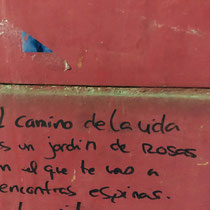 l camino de la vida
s un jardín de ROSAS
n el que te vas a
encontras espinas.